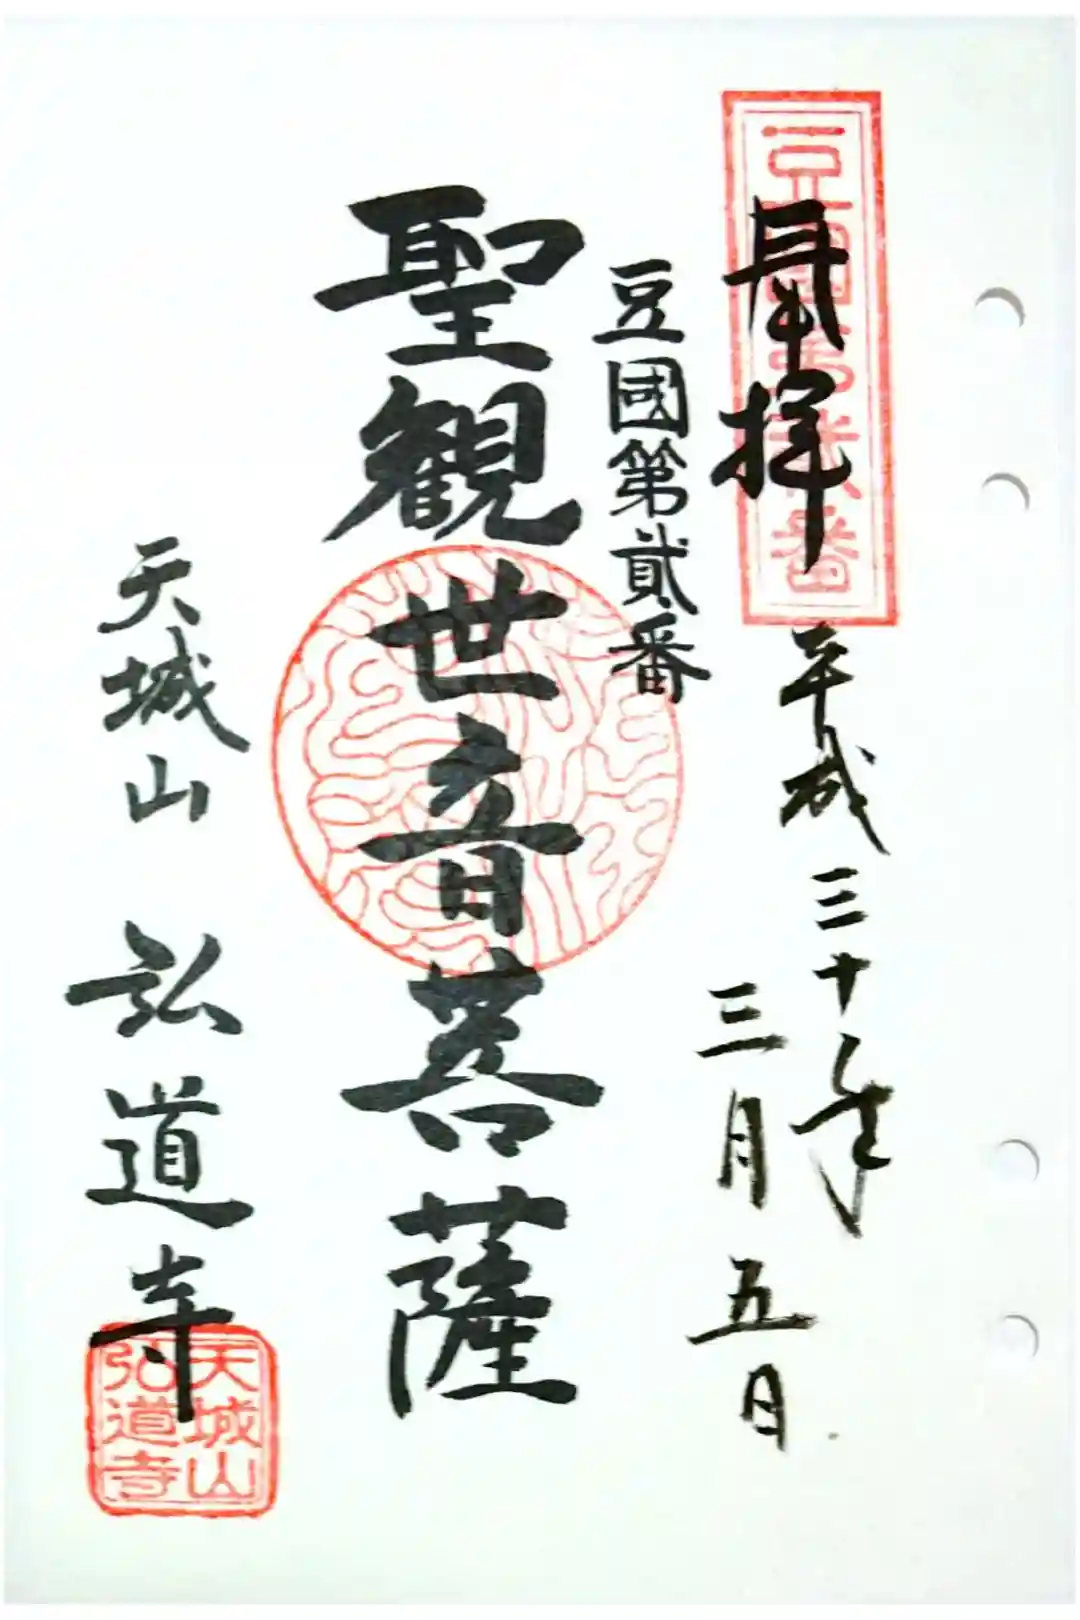 豆國第貳番
奉拝
平成三十年
三月五日
豆國第貳番
聖観世音菩薩
天城山 弘道寺
天城山
弘道寺